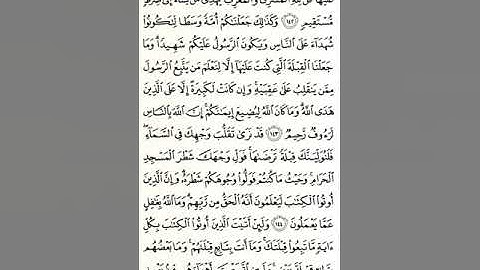 مُّسْتَقِيمٍ ١٤٢ وَكَذَٰلِكَ جَعَلْنَٰكُمْ أُمَّةً وَسَطًا لِّتَكُونُوا۟
شُهَدَآءَ عَلَى ٱلنَّاسِ وَيَكُونَ ٱلرَّسُولُ عَلَيْكُمْ شَهِيدًا ۗ وَمَا
جَعَلْنَا ٱلْقِبْلَةَ ٱلَّتِى كُنتَ عَلَيْهَآ إِلَّا لِنَعْلَمَ مَن يَتَّبِعُ ٱلرَّسُولَ
مِمَّن يَنقَلِبُ عَلَىٰ عَقِبَيْهِ ۚ وَإِن كَانَتْ لَكَبِيرَةً إِلَّا عَلَى ٱلَّذِينَ
هَدَى ٱللَّهُ ۗ وَمَا كَانَ ٱللَّهُ لِيُضِيعَ إِيمَٰنَكُمْ ۚ إِنَّ ٱللَّهَ بِٱلنَّاسِ
لَرَءُوفٌ رَّحِيمٌ ١٤٣ قَدْ نَرَىٰ تَقَلُّبَ وَجْهِكَ فِى ٱلسَّمَآءِ ۖ
فَلَنُوَلِّيَنَّكَ قِبْلَةً تَرْضَىٰهَا ۚ فَوَلِّ وَجْهَكَ شَطْرَ ٱلْمَسْجِدِ
ٱلْحَرَامِ ۚ وَحَيْثُ مَا كُنتُمْ فَوَلُّوا۟ وُجُوهَكُمْ شَطْرَهُۥ ۗ وَإِنَّ ٱلَّذِينَ
أُوتُوا۟ ٱلْكِتَٰبَ لَيَعْلَمُونَ أَنَّهُ ٱلْحَقُّ مِن رَّبِّهِمْ ۗ وَمَا ٱللَّهُ بِغَٰفِلٍ
عَمَّا يَعْمَلُونَ ١٤٤ وَلَئِنْ أَتَيْتَ ٱلَّذِينَ أُوتُوا۟ ٱلْكِتَٰبَ بِكُلِّ
ءَايَةٍ مَّا تَبِعُوا۟ قِبْلَتَكَ ۚ وَمَآ أَنتَ بِتَابِعٍ قِبْلَتَهُمْ ۚ وَمَا بَعْضُهُم